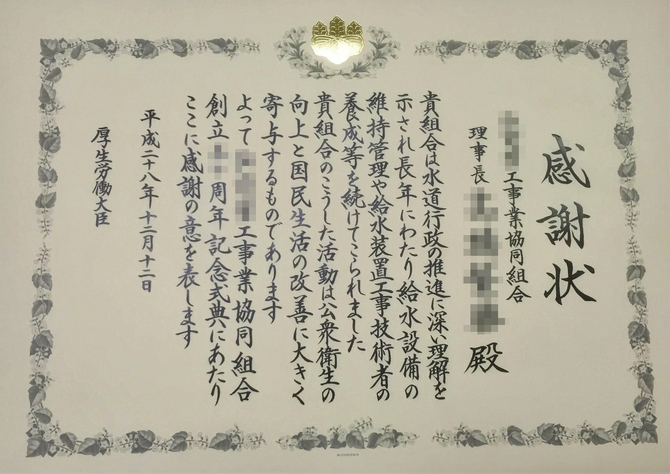 感謝状
工事業協同組合
理事長
殿
貴組合は水道行政の推進に深い理解を
示され長年にわたり給水設備の
維持管理や給水装置工事技術者の
養成等を続けてこられました
貴組合のこうした活動は公衆衛生の
向上と国民生活の改善に大きく
寄与するものであります
よって 工事業協同組合
創立 周年記念式典にあたり
ここに感謝の意を表します
平成二十八年十二月十二日
厚生労働大臣